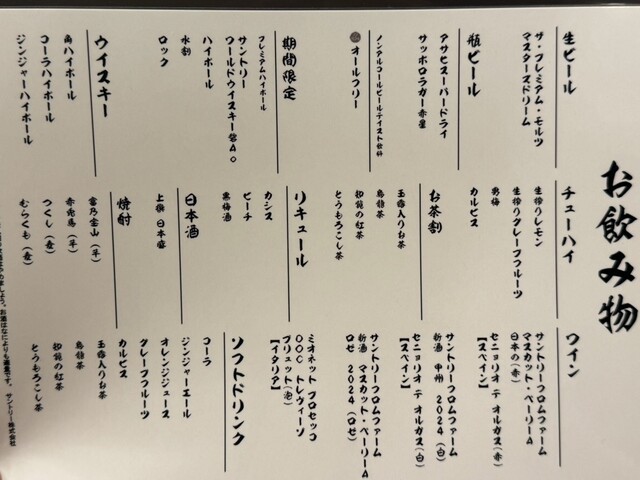 お飲み物
生ビール
ザ・プレミアム・モルツ
マスターズドリーム
瓶ビール
アサヒスーパードライ
サッポロラガー赤星
ノンアルコールビールテイスト飲料
オールフリー
期間限定
プレミアムハイボール
サントリー
ワールドウイスキー碧Ao
ハイボール
水割
ロック
ウイスキー
角ハイボール
コーラハイボール
ジンジャーハイボール
チューハイ
生搾りレモン
生搾りグレープフルーツ
男梅
カルピス
お茶割
玉露入りお茶
烏龍茶
和紅の紅茶
とうもろこし茶
リキュール
カシス
ピーチ
黒梅酒
日本酒
上撰 日本盛
焼酎
富乃宝山（芋）
赤兎馬（芋）
つくし（麦）
むらくも（麦）
ワイン
サントリーフロムファーム
マスカット・ベーリーA
日本の（赤）
セニョリオ デ オルガス（赤）
【スペイン】
サントリーフロムファーム
新酒 甲州 2024（白）
セニョリオ デ オルガス（白）
【スペイン】
サントリーフロムファーム
新酒 マスカット・ベーリーA
ロゼ 2024（ロゼ）
ミオネット プロセッコ
DOC トレヴィーゾ
ブリュット（泡）
【イタリア】
ソフトドリンク
コーラ
ジンジャーエール
オレンジジュース
グレープフルーツ
カルピス
玉露入りお茶
烏龍茶
和紅の紅茶
とうもろこし茶
やめましょう。お酒はなによりも適量です。 サントリー株式会社